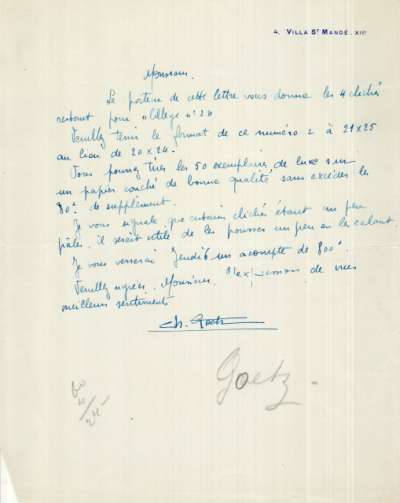 4, VILLA ST MANDÉ. XIIe
Monsieur,
Le porteur de cette lettre vous donne les 4 clichés
restant pour "Collège" n° 2.
Veuillez tenir le format de ce numéro 2 à 21x25
au lieu de 20x24.
Vous pouvez tirer les 50 exemplaires de luxe sur
un papier couché de bonne qualité sans excéder les
de supplément.
Je vous signale que certains clichés étant un peu
pâles, il serait utile de les pousser un peu en les calant.
Je vous verserai Jeudi 6 un acompte de 800
Veuillez agréer, Monsieur, l'expression de mes
meilleurs sentiments
Ch. Goetz
Goetz